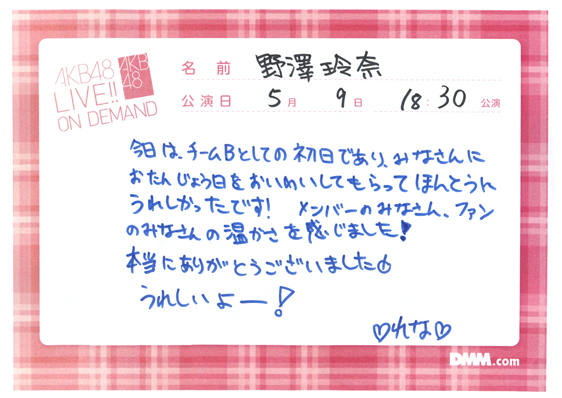 AKB48
LIVE!!
ON DEMAND
AKB
48
名前 野澤玲奈
公演日 5月 9日 18:30 公演
今日は、チームBとしての初日であり、みなさんに
おたんじょう日をおいわいしてもらってほんとうに
うれしかったです! メンバーのみなさん、ファン
のみなさんの温かさを感じました!
本当にありがとうございました
うれしいよー!
♡れな♡
DMM.com